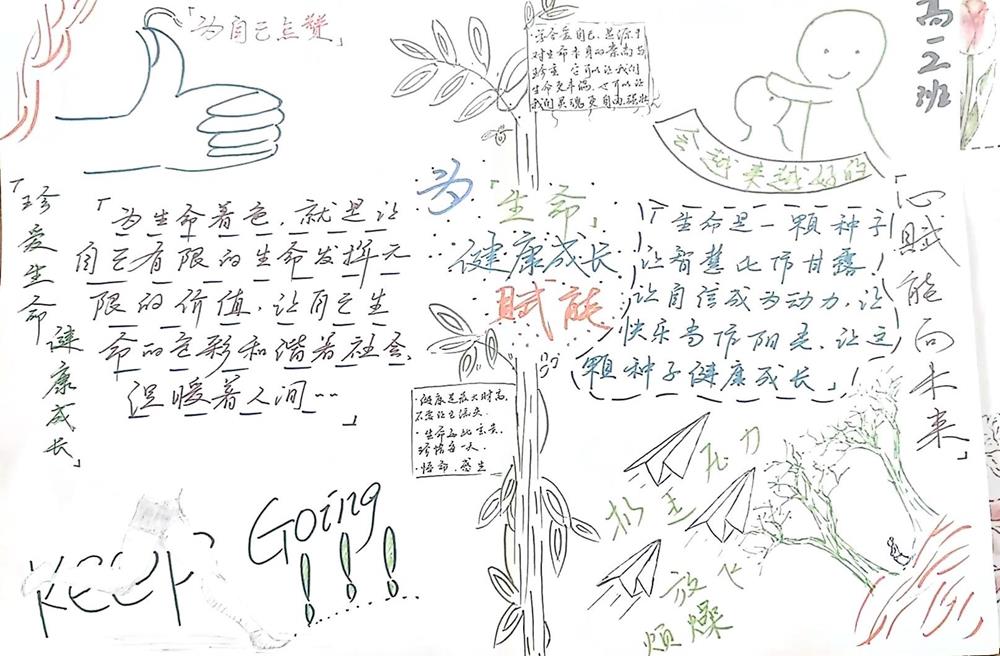 「为自己点赞」
学会爱自己,是源于
对生命本身的崇尚与
珍重,它可以让我们
生命更丰满,也可以让
我们灵魂更自由、强壮
高一2班
会越来越好的
「珍爱生命
健康成长」
「为生命着色,就是让
自己有限的生命发挥无
限的价值,让自己生
命的色彩和谐着社会、
温暖着人间……」
为「生命」
健康成长
赋能
「生命是一颗种子
让智慧比作甘露,
让自信成为动力,让
快乐当作阳光,让这
颗种子健康成长」
「心赋能向未来」
·健康是最大财富,
不要让它流失.
·生命如此宝贵,
珍惜每一天.
Keep
Going
!!!
压力
放飞
烦燥